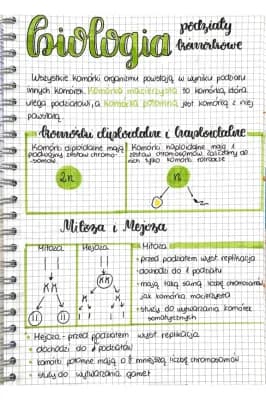 biologia
podziały
komórkowe
Wszystkie komórki organizmu powstają w wyniku podziału
innych komórek. Komórka macierzysta to komórka, która
ulega podziałowi, a komórka potomna jest komórką z niej
powstałą.
Komórki diploidalne i haploidalne
Komórki diploidalne mają
podwójny zestaw chromo-
somów
2n
Komórki haploidalne mają 1
zestaw chromosomów zaliczamy do
nich tylko komórki rozrodcze
n
Mitoza i Mejoza
Mitoza
Mejoza
Mitoza
• przed podziałem wyst. replikacja
• dochodzi do 1 podziału
• mają taką samą liczbę chromosomów
jak komórka macierzysta
• służy do wytwarzania komórek
somatycznych
• Mejoza - przed podziałem wyst. replikacja
• dochodzi do podziałów
• komórki potomne mają o mniejszą liczbę chromosomów
• służy do wytwarzania gamet